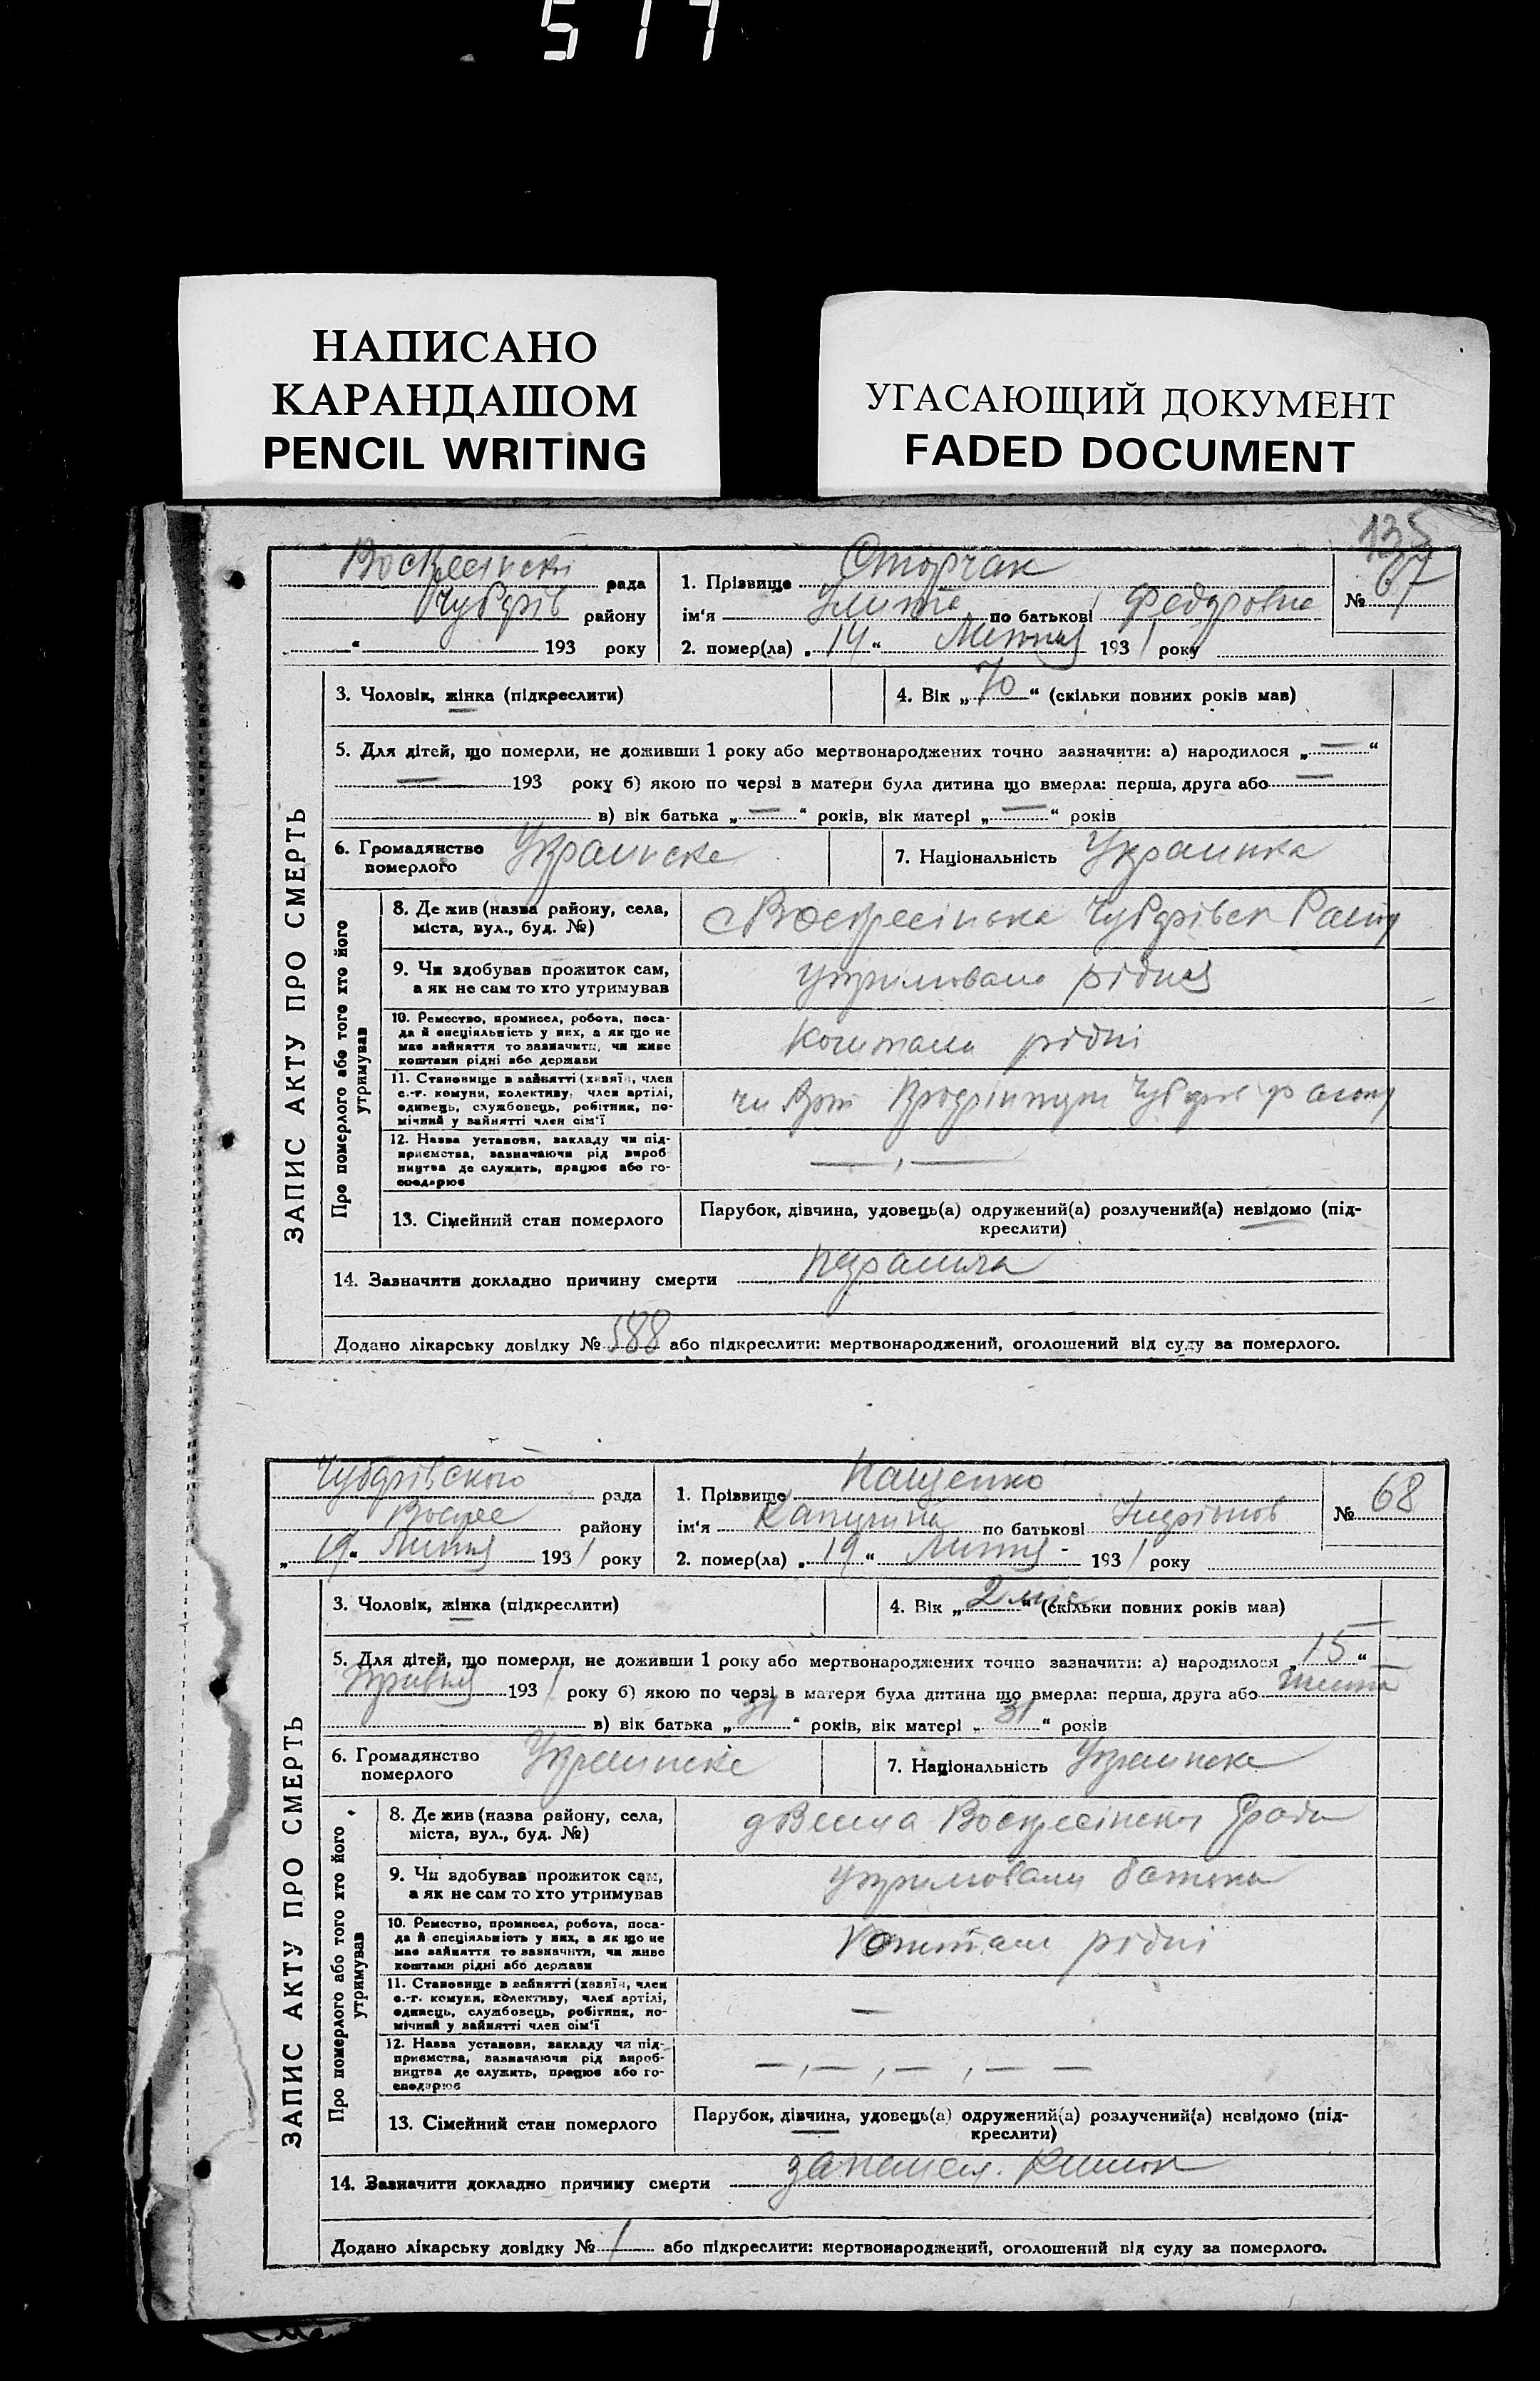 517
НАПИСАНО
КАРАНДАШОМ
PENCIL WRITING
УГАСАЮЩИЙ ДОКУМЕНТ
FADED DOCUMENT
135
ЗАПИС АКТУ ПРО СМЕРТЬ
рада
Чубарів району
193 року
1. Прізвище Сторчак
ім'я Улита по батькові Федоровна
2. помер(ла) „14“ Липня 1931 року
№ 67
3. Чоловік, жінка (підкреслити)
4. Вік „70“ (скільки повних років мав)
5. Для дітей, що померли, не доживши 1 року або мертвонароджених точно зазначити: а) народилося „—“
— 193 року б) якою по черзі в матери була дитина що вмерла: перша, друга або —
в) вік батька „—“ років, вік матері „—“ років
6. Громадянство померлого Украинске
7. Національність Украинка
Про померлого або того хто його утримував
8. Де жив (назва району, села,
міста, вул., буд. №)
9. Чи здобував прожиток сам,
а як не сам то хто утримував
рідня
10. Ремество, промисел, робота, поса-
да й спеціяльність у них, а як що не
має зайняття то зазначити, чи живе
коштами рідні або держави
Коштами рідні
11. Становище в зайнятті (хазяїн, член
с.-г. комуни, колективу, член артілі,
одинець, службовець, робітник, по-
мічний у зайнятті член сім'ї
12. Назва установи, закладу чи під-
приємства, зазначаючи рід вироб-
ництва де служить, працює або го-
сподарює
— , —
13. Сімейний стан померлого
Парубок, дівчина, удовець(а) одружений(а) розлучений(а) невідомо (під-
креслити)
14. Зазначити докладно причину смерти
Додано лікарську довідку № 588 або підкреслити: мертвонароджений, оголошений від суду за померлого.
ЗАПИС АКТУ ПРО СМЕРТЬ
Чубарівского рада
Воскрес району
„19“ Липня 1931 року
1. Прізвище Пащенко
ім'я по батькові
2. помер(ла) „19“ Липня 1931 року
№ 68
3. Чоловік, жінка (підкреслити)
4. Вік „2 міс“ (скільки повних років мав)
5. Для дітей, що померли, не доживши 1 року або мертвонароджених точно зазначити: а) народилося „15“
1931 року б) якою по черзі в матери була дитина що вмерла: перша, друга або
в) вік батька „31“ років, вік матері „31“ років
6. Громадянство померлого Украинске
7. Національність Украинска
Про померлого або того хто його утримував
8. Де жив (назва району, села,
міста, вул., буд. №)
9. Чи здобував прожиток сам,
а як не сам то хто утримував
10. Ремество, промисел, робота, поса-
да й спеціяльність у них, а як що не
має зайняття то зазначити, чи живе
коштами рідні або держави
Коштами рідні
11. Становище в зайнятті (хазяїн, член
с.-г. комуни, колективу, член артілі,
одинець, службовець, робітник, по-
мічний у зайнятті член сім'ї
—
12. Назва установи, закладу чи під-
приємства, зазначаючи рід вироб-
ництва де служить, працює або го-
сподарює
— , — , — , — —
13. Сімейний стан померлого
Парубок, дівчина, удовець(а) одружений(а) розлучений(а) невідомо (під-
креслити)
14. Зазначити докладно причину смерти
Додано лікарську довідку № / або підкреслити: мертвонароджений, оголошений від суду за померлого.